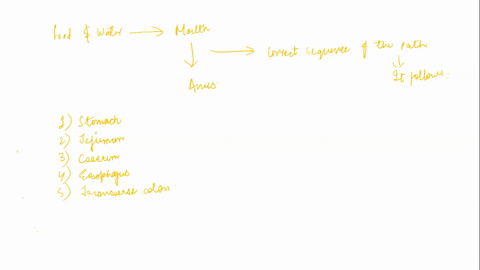 Food & Water → Mouth
→ Correct sequence of the path
It follows.
Anus
1) Stomach
2) Jejimom
3) Caecum
4) Eosophagus
5) Transverse colon